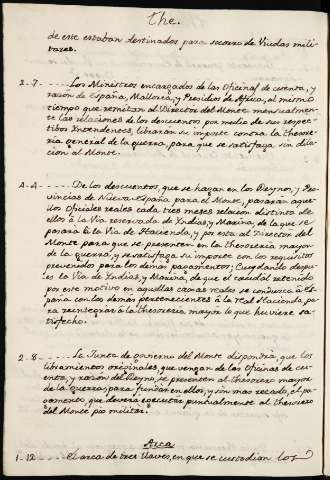 The.
de este estaban destinados para socorro de Viudas mili-
tares.
2-7.....Los Ministros encargados de las Oficinas de cuenta, y
razon de España, Mallorca, y Presidios de Africa, al mismo
tiempo que remitan al Director del Monte mensualmen-
te las relaciones de los descuentos por medio de sus respec-
tibos Intendentes, librarán su importe contra la theso-
reria general de la guerra, para que se satisfaga sin dila-
cion al Monte.
4-4.....De los descuentos, que se hagan en los Reynos, y Pro-
vincias de Nueva España para el Monte, pasarán aque-
llos oficiales reales cada tres meses relacion distinta de
ellos á la Via reservada de Indias, y Marina, de la que se
pasará á la Via de Hacienda, y por esta al Director del
Monte para que se presenten en la thesoreria mayor
de la guerra, y se satisfaga su importe con los requisitos
prevenidos para los demás pagamentos; Cuydando despu-
es la Via de Indias, y Marina, de que el caudal retenido
por este motivo en aquellas caxas reales se conduzca á Es-
paña con los demás pertenecientes á la Real Hacienda, pa-
ra reintegrar á la thesoreria mayor lo que huviere sa-
tisfecho.
2-8.....La Junta de govierno del Monte dispondrá, que los
libramientos originales que vengan de las Oficinas de cu-
enta, y razon del Reyno, se presenten al thesorero mayor
de la guerra, para que fundan en ellos, y sin mas recado, el pa-
gamento, que deverá executar puntualmente al thesorero
del Monte pio militar.
Arca
1-12....El arca de tres llaves, en que se custodian los